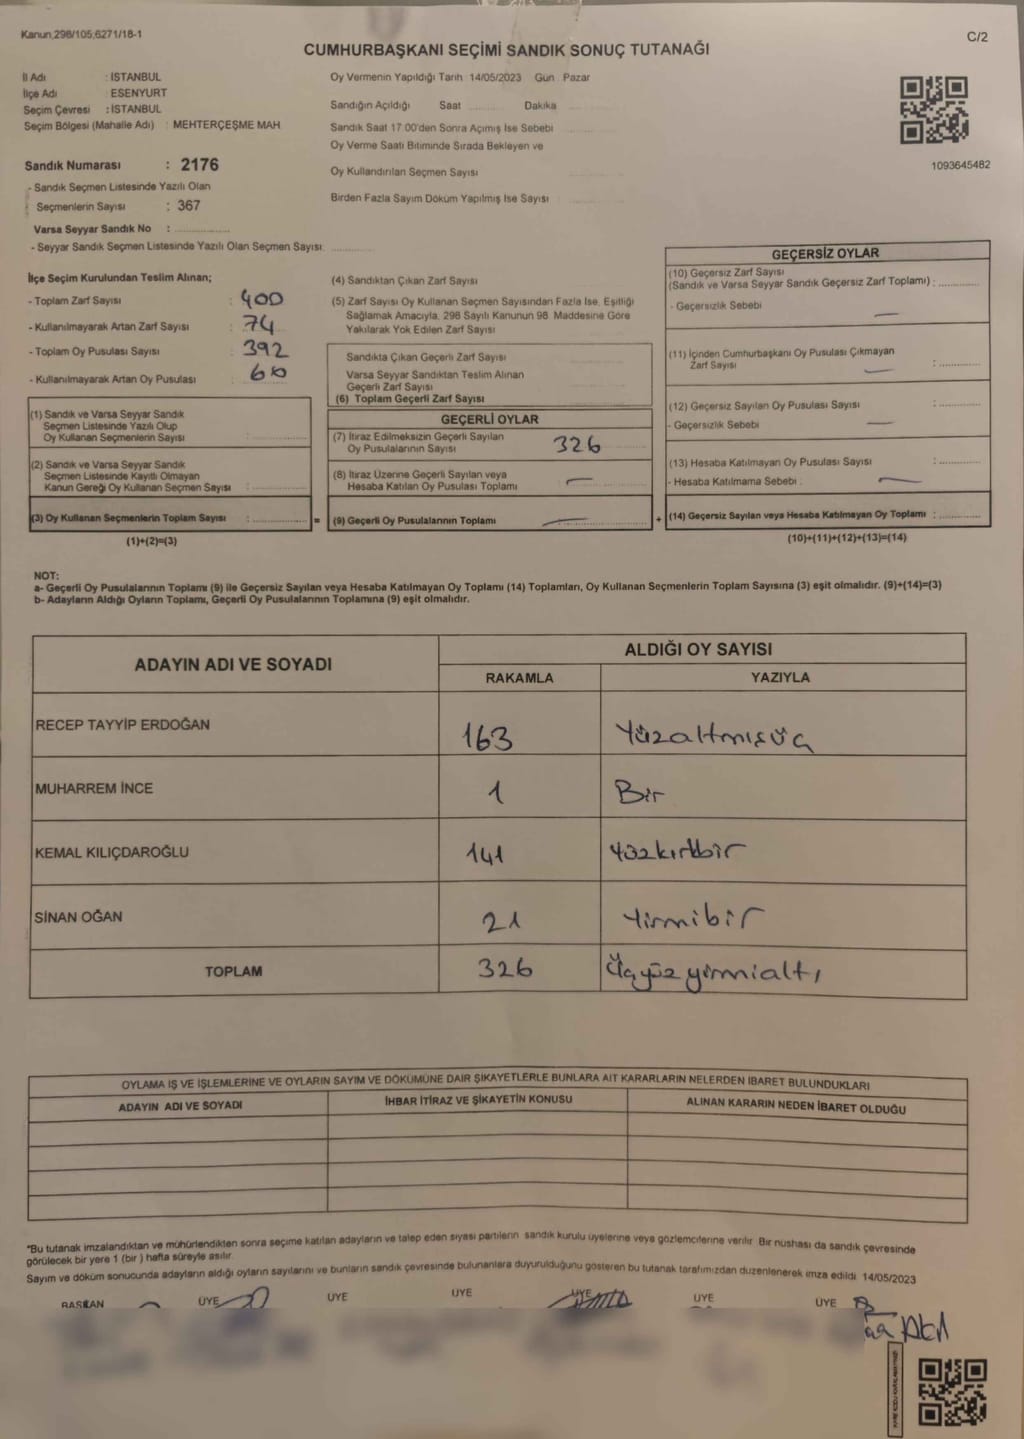 Kanun,298/105,6271/18-1
C/2
CUMHURBAŞKANI SEÇİMİ SANDIK SONUÇ TUTANAĞI
İl Adı : İSTANBUL
İlçe Adı : ESENYURT
Seçim Çevresi : İSTANBUL
Seçim Bölgesi (Mahalle Adı) : MEHTERÇEŞME MAH
Oy Vermenin Yapıldığı Tarih 14/05/2023 Gün : Pazar
Sandığın Açıldığı Saat .......... Dakika
Sandık Saat 17:00'den Sonra Açımış İse Sebebi
Oy Verme Saati Bitiminde Sırada Bekleyen ve
Oy Kullandırılan Seçmen Sayısı
Birden Fazla Sayım Döküm Yapılmış İse Sayısı
1093645482
Sandık Numarası : 2176
- Sandık Seçmen Listesinde Yazılı Olan
Seçmenlerin Sayısı : 367
Varsa Seyyar Sandık No : ..............
- Seyyar Sandık Seçmen Listesinde Yazılı Olan Seçmen Sayısı: ..............
İlçe Seçim Kurulundan Teslim Alınan;
- Toplam Zarf Sayısı : 400
- Kullanılmayarak Artan Zarf Sayısı : 74
- Toplam Oy Pusulası Sayısı : 392
- Kullanılmayarak Artan Oy Pusulası :
(1) Sandık ve Varsa Seyyar Sandık
Seçmen Listesinde Yazılı Olup
Oy Kullanan Seçmenlerin Sayısı : ..............
(2) Sandık ve Varsa Seyyar Sandık
Seçmen Listesinde Kayıtlı Olmayan
Kanun Gereği Oy Kullanan Seçmen Sayısı : ..............
(3) Oy Kullanan Seçmenlerin Toplam Sayısı : .............. =
(1)+(2)=(3)
(4) Sandıktan Çıkan Zarf Sayısı
(5) Zarf Sayısı Oy Kullanan Seçmen Sayısından Fazla İse, Eşitliği
Sağlamak Amacıyla, 298 Sayılı Kanunun 98. Maddesine Göre
Yakılarak Yok Edilen Zarf Sayısı
Sandıkta Çıkan Geçerli Zarf Sayısı
Varsa Seyyar Sandıktan Teslim Alınan
Geçerli Zarf Sayısı
(6) Toplam Geçerli Zarf Sayısı
GEÇERLİ OYLAR
(7) İtiraz Edilmeksizin Geçerli Sayılan
Oy Pusulalarının Sayısı 326
(8) İtiraz Üzerine Geçerli Sayılan veya
Hesaba Katılan Oy Pusulası Toplamı —
(9) Geçerli Oy Pusulalarının Toplamı — +
GEÇERSİZ OYLAR
(10) Geçersiz Zarf Sayısı
(Sandık ve Varsa Seyyar Sandık Geçersiz Zarf Toplamı) : ..............
- Geçersizlik Sebebi —
(11) İçinden Cumhurbaşkanı Oy Pusulası Çıkmayan
Zarf Sayısı — : ..............
(12) Geçersiz Sayılan Oy Pusulası Sayısı : ..............
- Geçersizlik Sebebi —
(13) Hesaba Katılmayan Oy Pusulası Sayısı : ..............
- Hesaba Katılmama Sebebi : —
(14) Geçersiz Sayılan veya Hesaba Katılmayan Oy Toplamı : ..............
(10)+(11)+(12)+(13)=(14)
NOT:
a- Geçerli Oy Pusulalarının Toplamı (9) ile Geçersiz Sayılan veya Hesaba Katılmayan Oy Toplamı (14) Toplamları, Oy Kullanan Seçmenlerin Toplam Sayısına (3) eşit olmalıdır. (9)+(14)=(3)
b- Adayların Aldığı Oyların Toplamı, Geçerli Oy Pusulalarının Toplamına (9) eşit olmalıdır.
ADAYIN ADI VE SOYADI
ALDIĞI OY SAYISI
RAKAMLA YAZIYLA
RECEP TAYYİP ERDOĞAN 163 Yüzaltmışüç
MUHARREM İNCE 1 Bir
KEMAL KILIÇDAROĞLU 141 Yüzkırkbir
SİNAN OĞAN 21 Yirmibir
TOPLAM 326 Üçyüzyirmialtı
OYLAMA İŞ VE İŞLEMLERİNE VE OYLARIN SAYIM VE DÖKÜMÜNE DAİR ŞİKAYETLERLE BUNLARA AİT KARARLARIN NELERDEN İBARET BULUNDUKLARI
ADAYIN ADI VE SOYADI İHBAR İTİRAZ VE ŞİKAYETİN KONUSU ALINAN KARARIN NEDEN İBARET OLDUĞU
*Bu tutanak imzalandıktan ve mühürlendikten sonra seçime katılan adayların ve talep eden siyasi partilerin sandık kurulu üyelerine veya gözlemcilerine verilir. Bir nüshası da sandık çevresinde
görülecek bir yere 1 (bir ) hafta süreyle asılır.
Sayım ve döküm sonucunda adayların aldığı oyların sayılarını ve bunların sandık çevresinde bulunanlara duyurulduğunu gösteren bu tutanak tarafımızdan düzenlenerek imza edildi. 14/05/2023
BAŞKAN ÜYE ÜYE ÜYE ÜYE ÜYE ÜYE